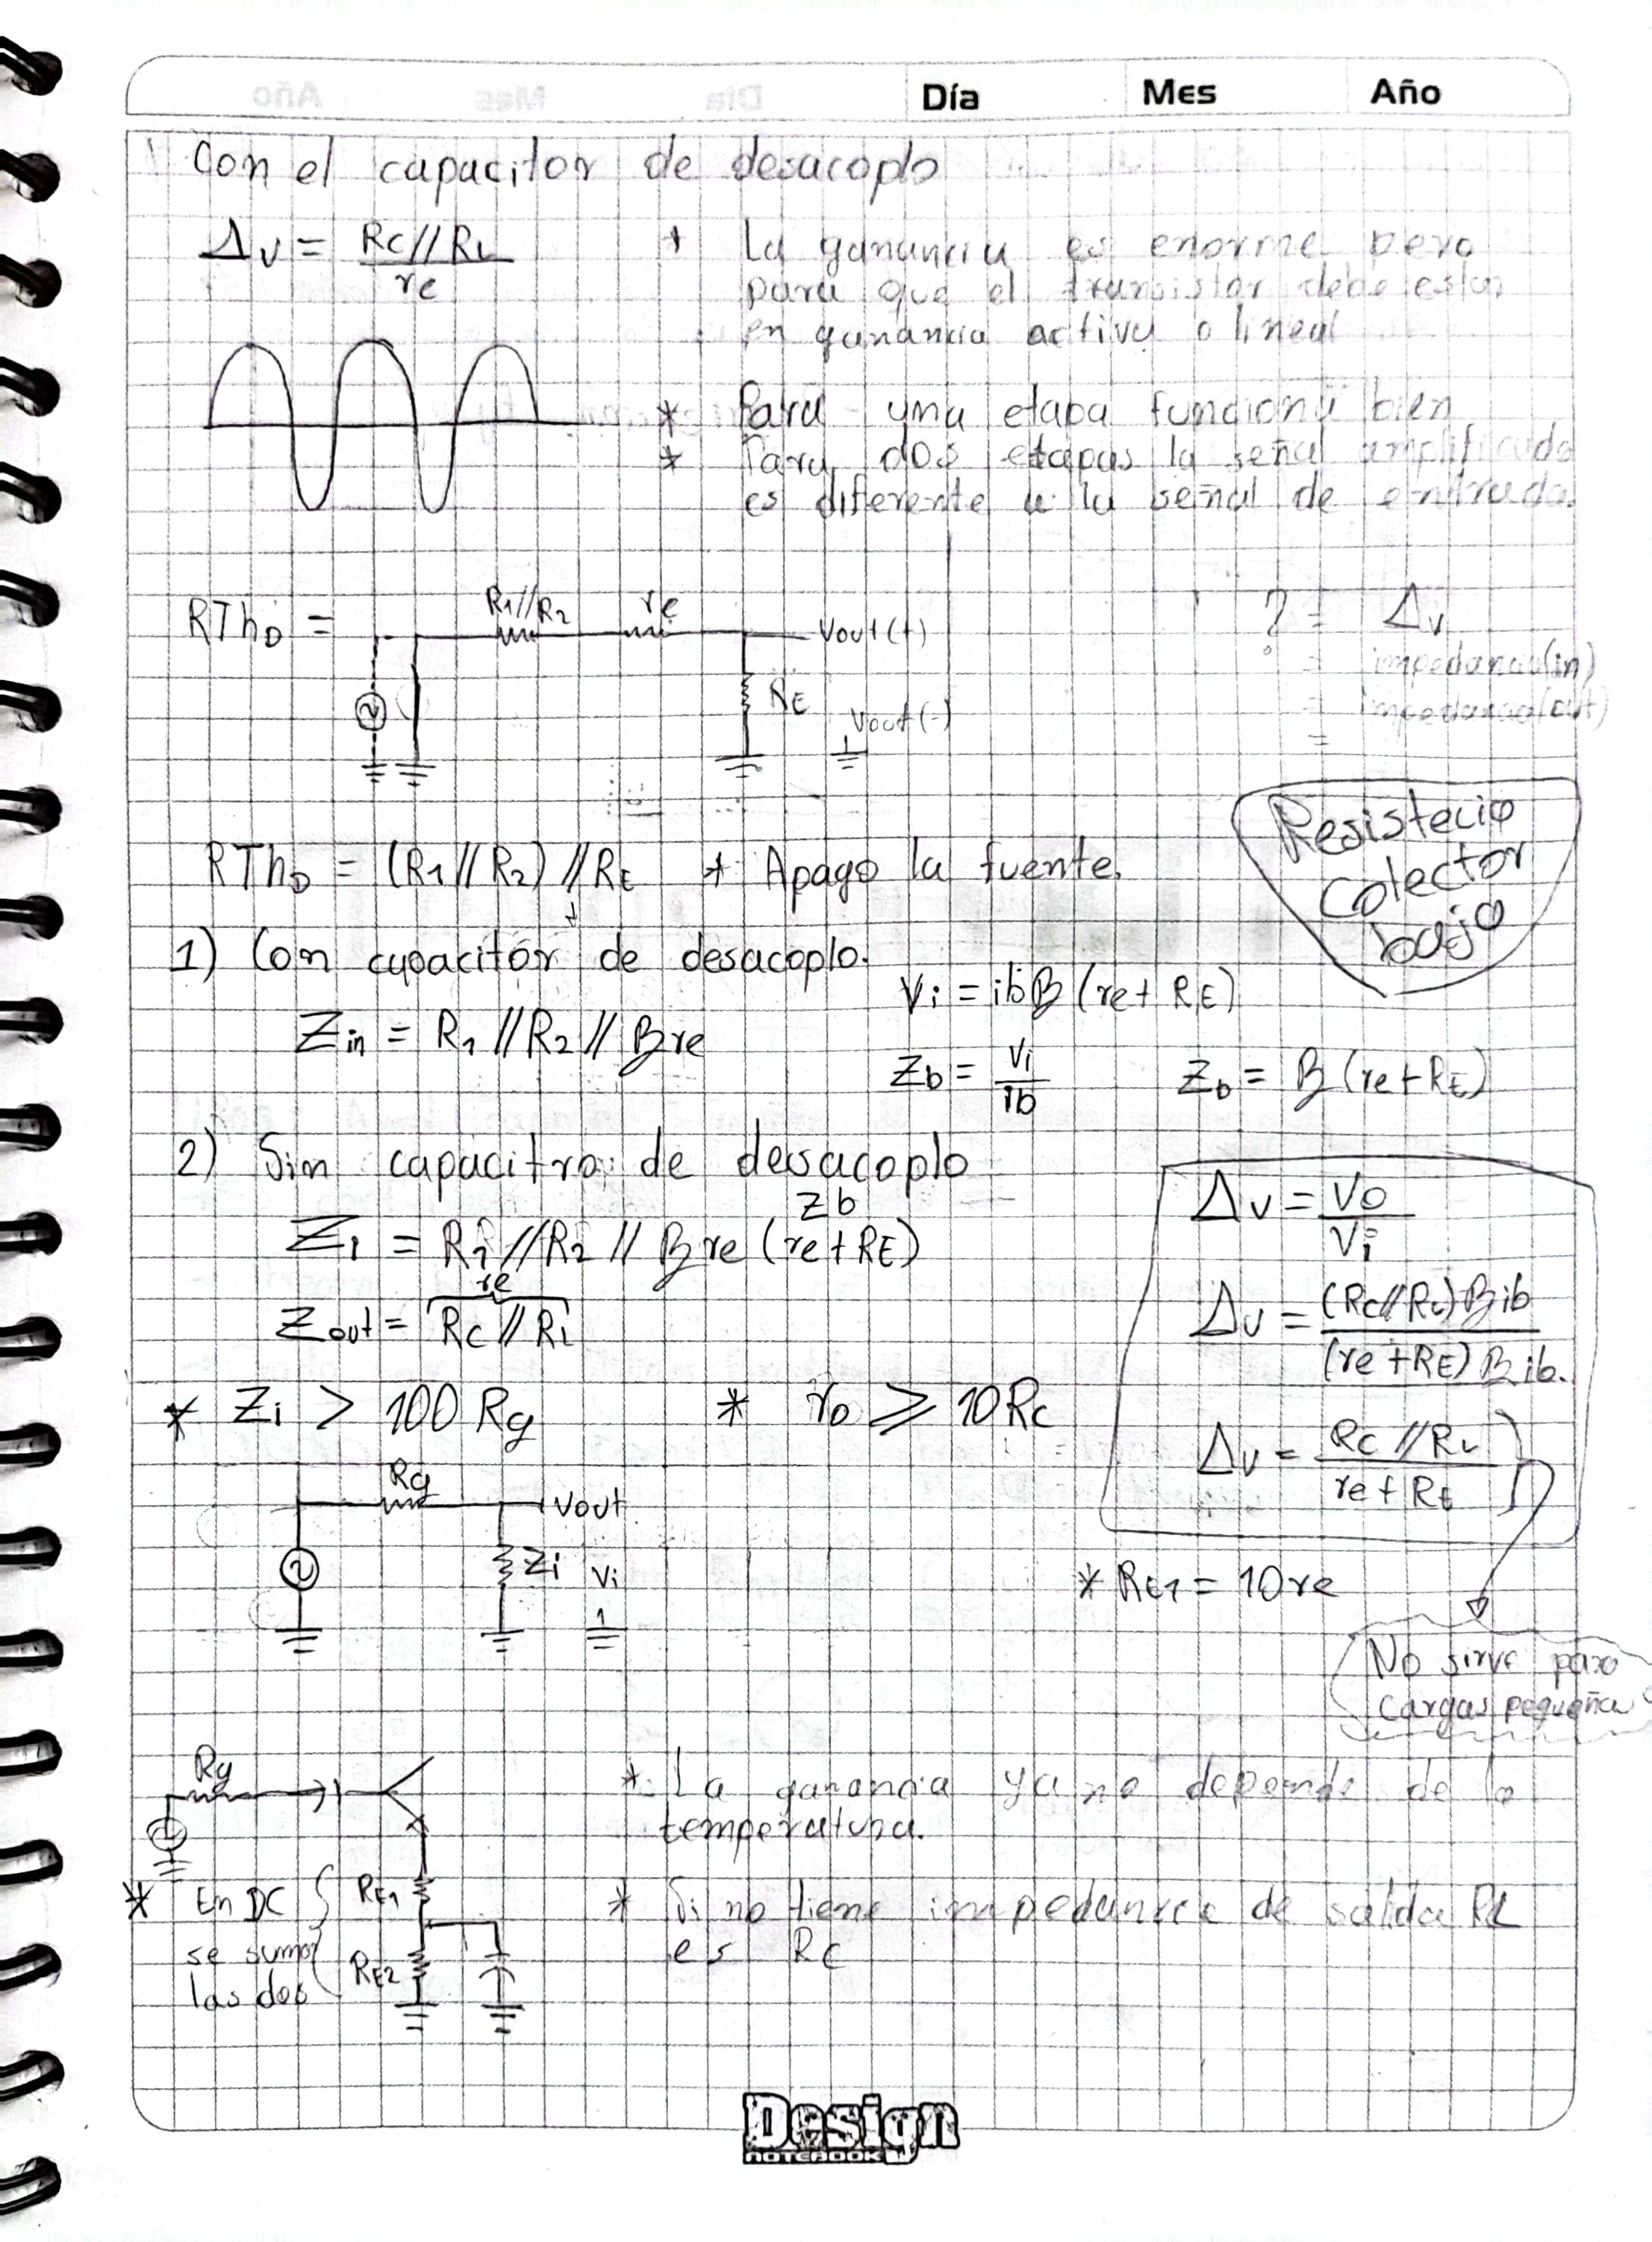 Día Mes Año
Con el capacitor de desacoplo
Δv = Rc//RL / re
+ La ganancia es enorme pero
para que el transistor debe estar
en ganancia activa o lineal
* Para una etapa funciona bien
* Para dos etapas la señal amplificada
es diferente a la señal de entrada.
RThb =
R1//R2 re Vout(+)
RE Vout(-)
? = Δv
= impedancia(in)
= impedancia(out)
=
Resistecia
Colector
bajo
RThb = (R1//R2)//RE * Apago la fuente.
1) Con capacitor de desacoplo.
Zin = R1//R2//Bre
Vi = ibB(re+RE)
Zb = Vi / ib Zb = B(re+RE)
2) Sin capacitro de desacoplo
zb
Zi = R1//R2//Bre(re+RE)
re
Zout = Rc//RL
Δv = Vo / Vi
Δv = (Rc//RL)Bib / (re+RE)Bib.
Δv = Rc//RL / re+RE
* Zi > 100Rg * ro ⩾ 10Rc
Rg Vout
Zi Vi
* RE1 = 10re
No sirve para
Cargas pequeña
Rg
* La ganancia ya no depende de la
temperatura.
* En DC
se suman
las dos
RE1
RE2
* Si no tiene impedancia de salida RL
es RC
Design
NOTEBOOK